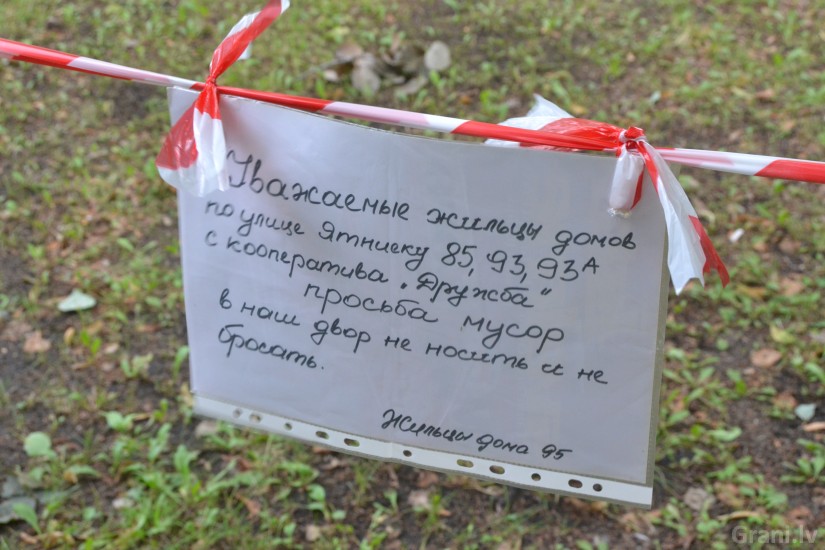 Уважаемые жильцы домов
по улице Ятниеку 85, 93, 93А
с кооператива „Дружба"
просьба мусор
в наш двор не носить и не
бросать.
Жильцы дома 95
Grani.lv